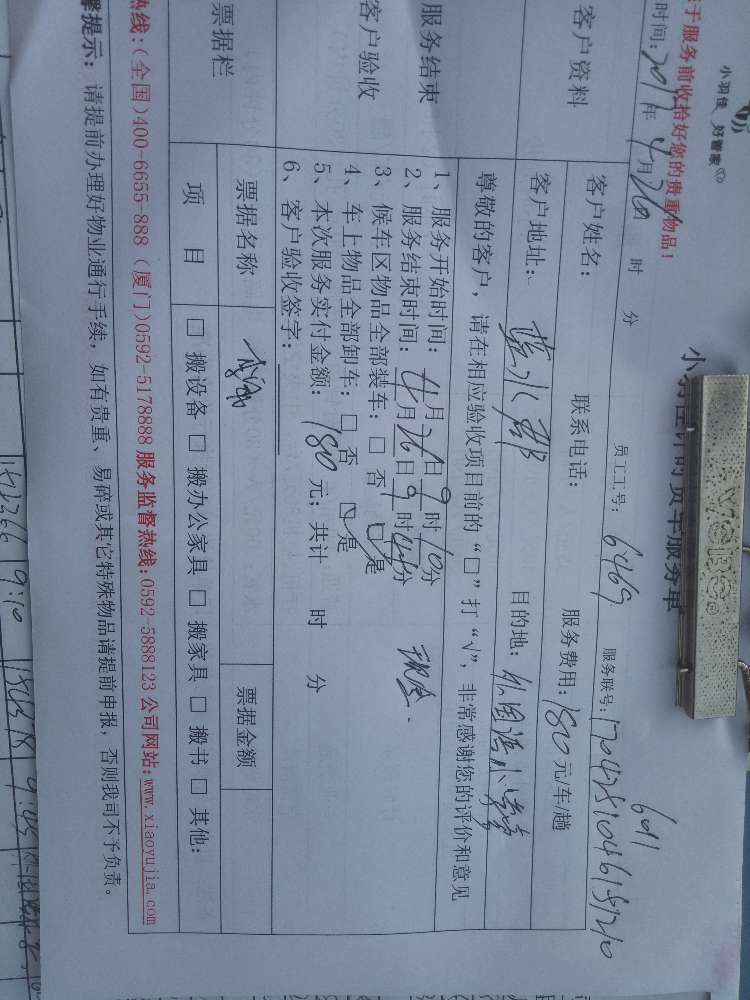 小羽佳 好管家
小羽佳计时货车服务单
于服务前收拾好您的贵重物品!
6011
时间: 2017年4月26日 时 分 员工工号: 6469 服务联号:
客户资料
客户姓名: 联系电话: 服务费用: 180元/车/趟
客户地址: 目的地: 外国语小学
尊敬的客户, 请在相应验收项目前的“□”打“√”, 非常感谢您的评价和意见
服务结束
客户验收
1、服务开始时间: 4月26日9时10分
2、服务结束时间: 4月26日9时44分
3、候车区物品全部装车: □ 否 □ 是
4、车上物品全部卸车: □ 否 □ 是
5、本次服务实付金额: 180元; 共计 时 分
6、客户验收签字:
票据栏
票据名称 票据金额
项 目 □ 搬设备 □ 搬办公家具 □ 搬家具 □ 搬书 □ 其他:
热线:(全国)400-6655-888 (厦门)0592-5178888 服务监督热线:0592-5888123 公司网站:www.xiaoyujia.com
馨提示: 请提前办理好物业通行手续, 如有贵重、易碎或其它特殊物品请提前申报, 否则我司不予负责。
9:10